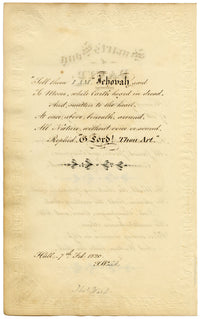 "Tell them I AM," Jehovah said
To Moses, while Earth heard in dread,
And smitten to the heart,
At once above, beneath, around,
All Nature, without voice or sound,
Replied, "O Lord! Thou Art."
Hull, 7th Feb. 1820